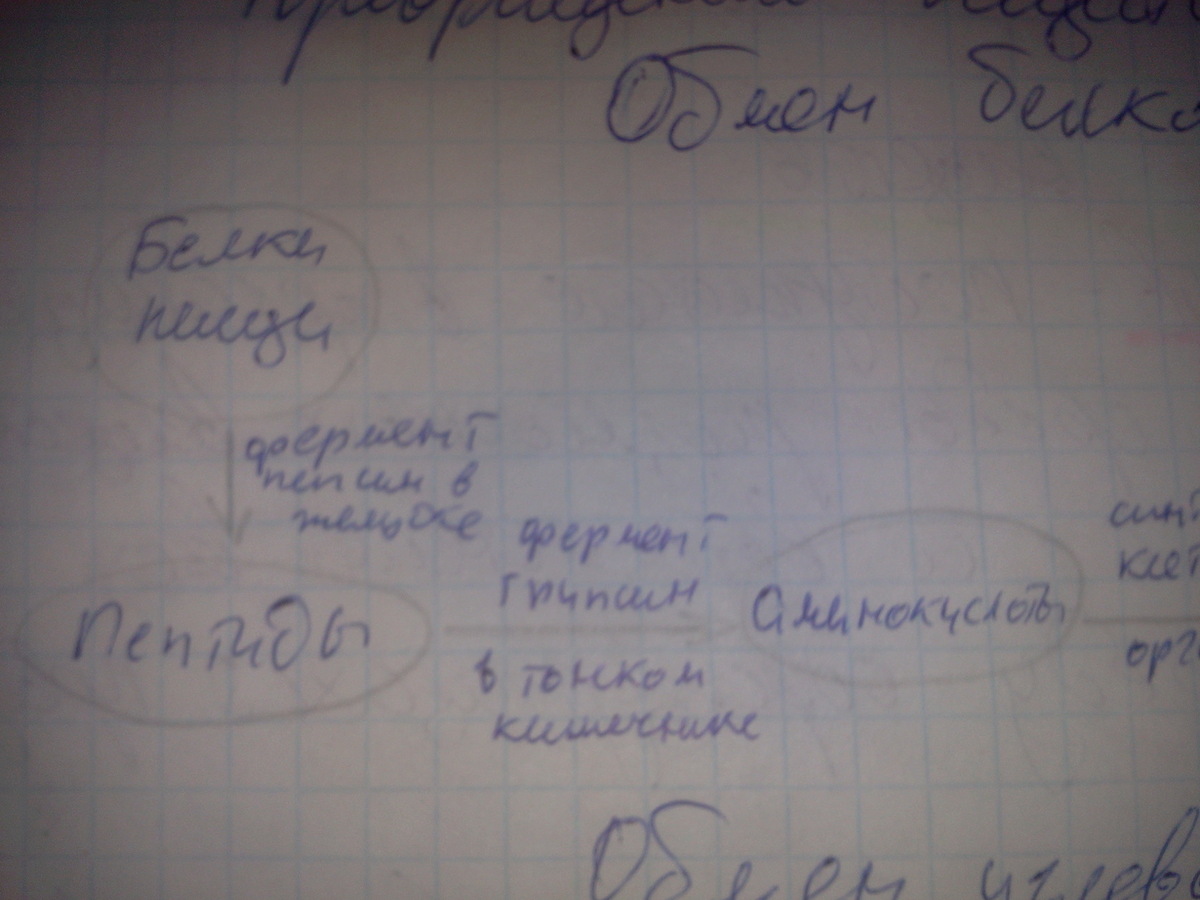 Обмен белко
Белки
пищи
фермент
пепсин в
желудке
Пептиды
фермент
трипсин
в тонком
кишечнике
Аминокислоты
синт
клет
орга
Обмен углево